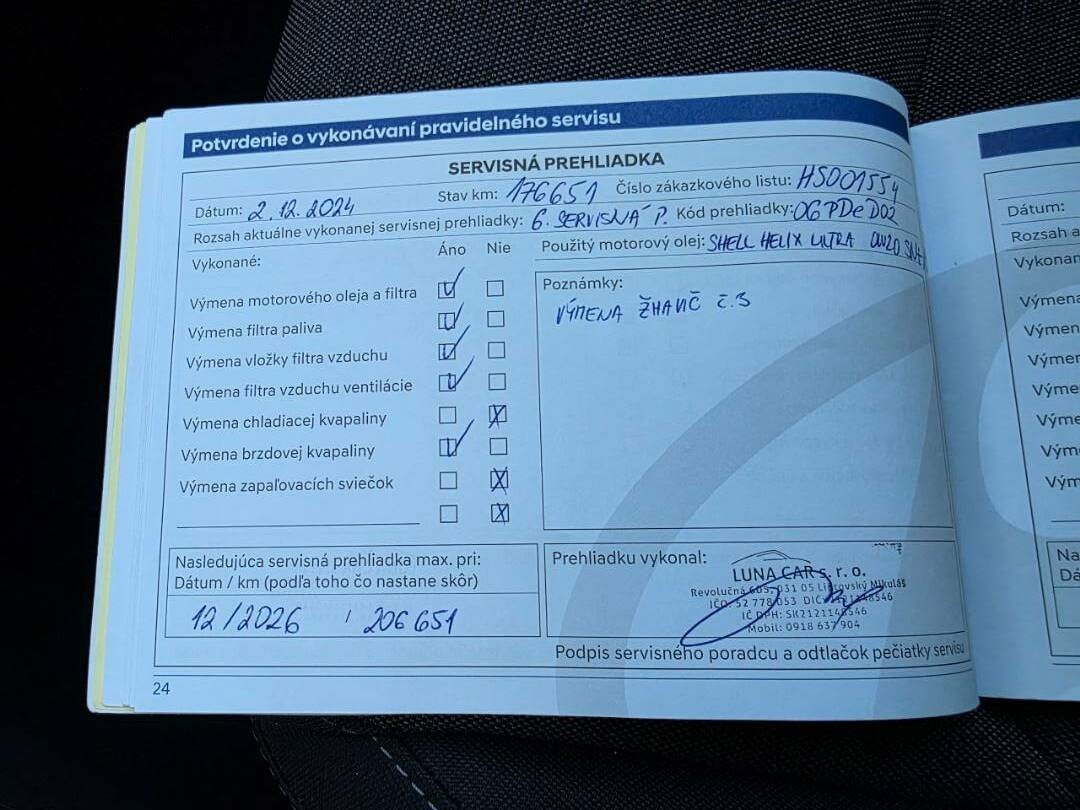 Potvrdenie o vykonávaní pravidelného servisu
SERVISNÁ PREHLIADKA
Dátum: 2.12.2024 Stav km: 176651 Číslo zákazkového listu: HSD01554
Rozsah aktuálne vykonanej servisnej prehliadky: 6. SERVISNÁ P. Kód prehliadky: OGPDeD02
Vykonané: Áno Nie Použitý motorový olej: SHELL HELIX ULTRA 0W20
Výmena motorového oleja a filtra
Výmena filtra paliva
Výmena vložky filtra vzduchu
Výmena filtra vzduchu ventilácie
Výmena chladiacej kvapaliny
Výmena brzdovej kvapaliny
Výmena zapaľovacích sviečok
Poznámky:
VÝMENA ŽHAVIČ Č.3
Nasledujúca servisná prehliadka max. pri:
Dátum / km (podľa toho čo nastane skôr)
12/2026 / 206651
Prehliadku vykonal:
LUNA CAR s. r. o.
Revolučná 605, 031 05 Liptovský Mikuláš
IČO: 52 778 053 DIČ:
IČ DPH: SK2121148546
Mobil: 0918 637 904
Podpis servisného poradcu a odtlačok pečiatky servisu
24
Dátum:
Rozsah a
Vykonan
Výmena
Výmen
Výmer
Výme
Výme
Vým
Vým
Na
Dá